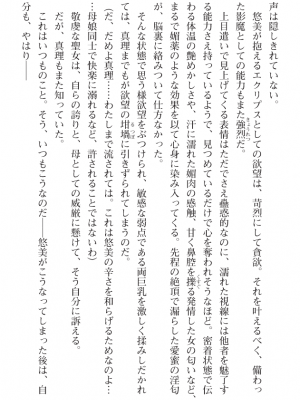 声は隠しきれていない。
　悠美が抱えるエクリプスとしての欲望は、苛烈にして貪欲。それを叶えるべく、備わっ
た影魔としての能力もまた強烈だ。
　上目遣いで見上げてくる表情はただでさえ蠱惑的なのに、濡れた視線には他者を魅了す
る能力さえ持っているようで、見つめているだけで心を奪われそうなほど。密着状態で伝
わる体温の艶めかしさや、汗に濡れた媚肉の感触、甘く鼻腔を擽る発情した女の匂いなど、
まるで媚薬のような効果を以て心身に染み入ってくる。先程の絶頂で漏らした愛蜜の淫匂
が、脳裏に絡みついて仕方なかった。
　そんな状態で思う様欲望をぶつけられ、敏感な弱点である両巨乳を激しく揉みしだかれ
ては、真理までもが欲望の坩堝に引きずられてしまうのだ。
（だ、だめよ真理……わたしまで流されては。これは悠美の辛さを和らげるためなのよ…
…母娘同士で快楽に溺れるなど、許されることではないわ）
　敬虔な聖女は、自らの誇りと、母としての威厳に懸けて、そう自分に訴える。
　だが、真理もまた知っていた。
　これはいつものこと。そう、いつもこうなのだ――悠美がこうなってしまった後は、自
分も、やはり――